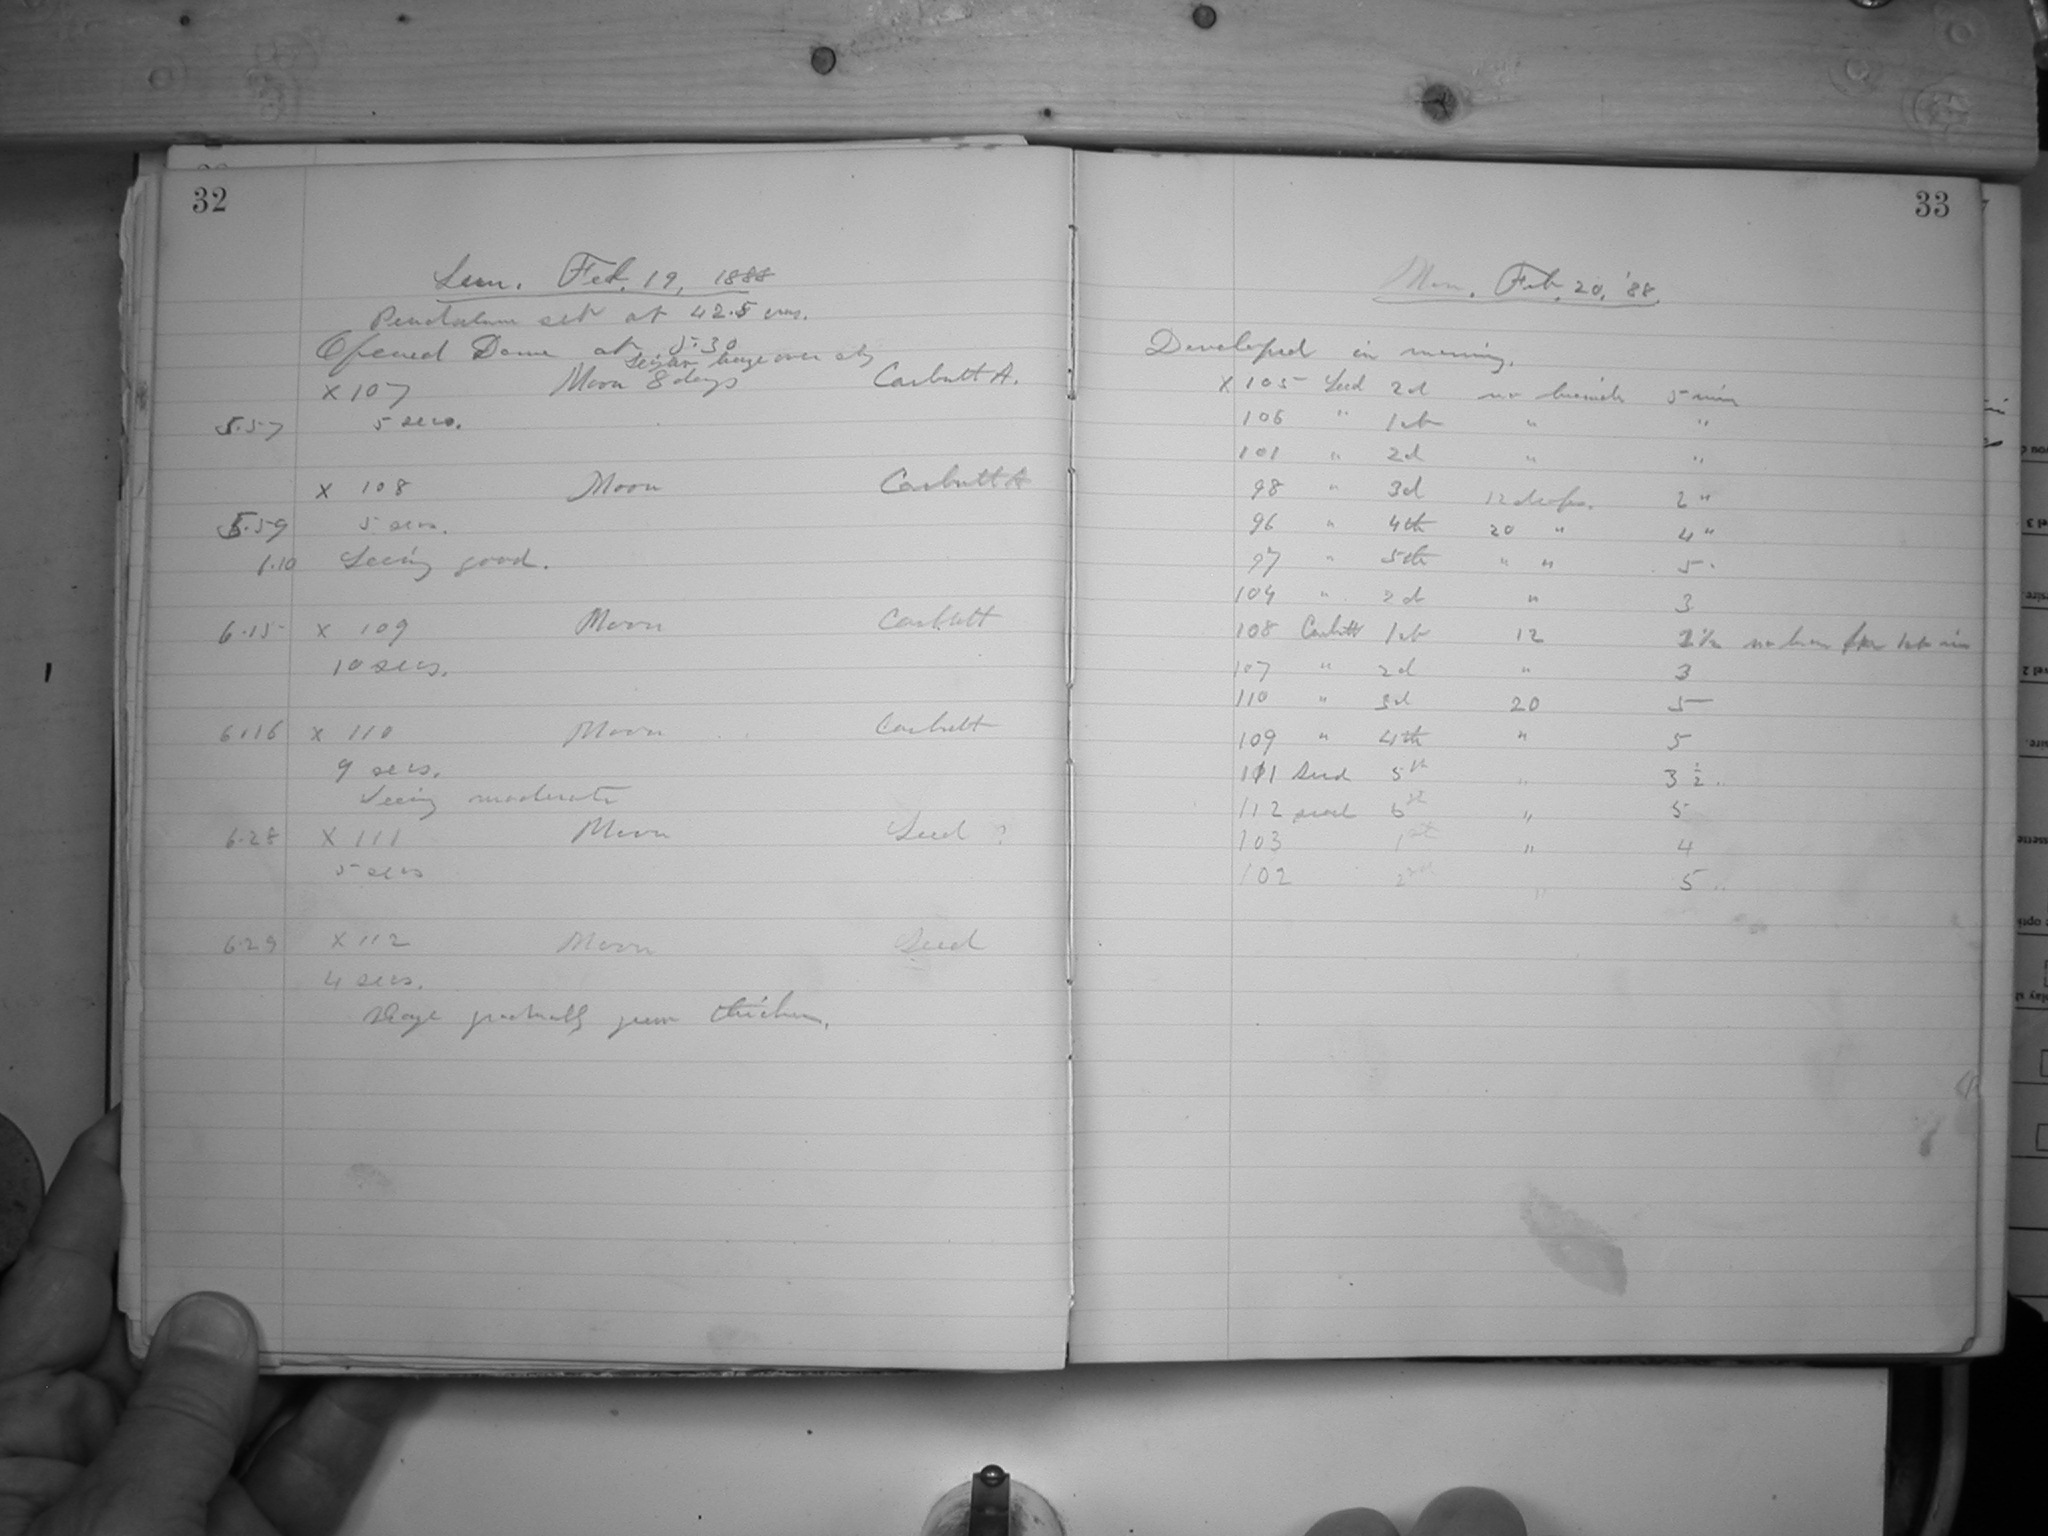 32
Sun. Feb. 19, 1888
Pendulum set at 42.5 cms.
Opened Dome at 5.30
haze over sky
X 107 Moon 8 days Carbutt A.
5.57 5 secs.
X 108 Moon Carbutt A
5.59 5 secs.
6.10 Seeing good.
6.15 X 109 Moon Carbutt
10 secs.
6.16 X 110 Moon Carbutt
9 secs.
Seeing moderate
6.28 X 111 Moon Seed ?
5 secs
6.29 X 112 Moon Seed
4 secs.
Haze gradually grew thicker.
33
Mon. Feb. 20, '88
Developed in morning.
X 105 Seed 2d no bromide 5 min
106 " 1st " "
101 " 2d " "
98 " 3d 12 drops. 2 "
96 " 4th 20 " 4 "
97 " 5th " " 5 "
104 " 2d " 3
108 Carbutt 1st 12 no brom for 1st min
107 " 2d " 3
110 " 3d 20 5
109 " 4th " 5
111 Seed 5th " 3 1/2 "
112 seed 6th " 5
103 1st " 4
102 2nd " 5 "